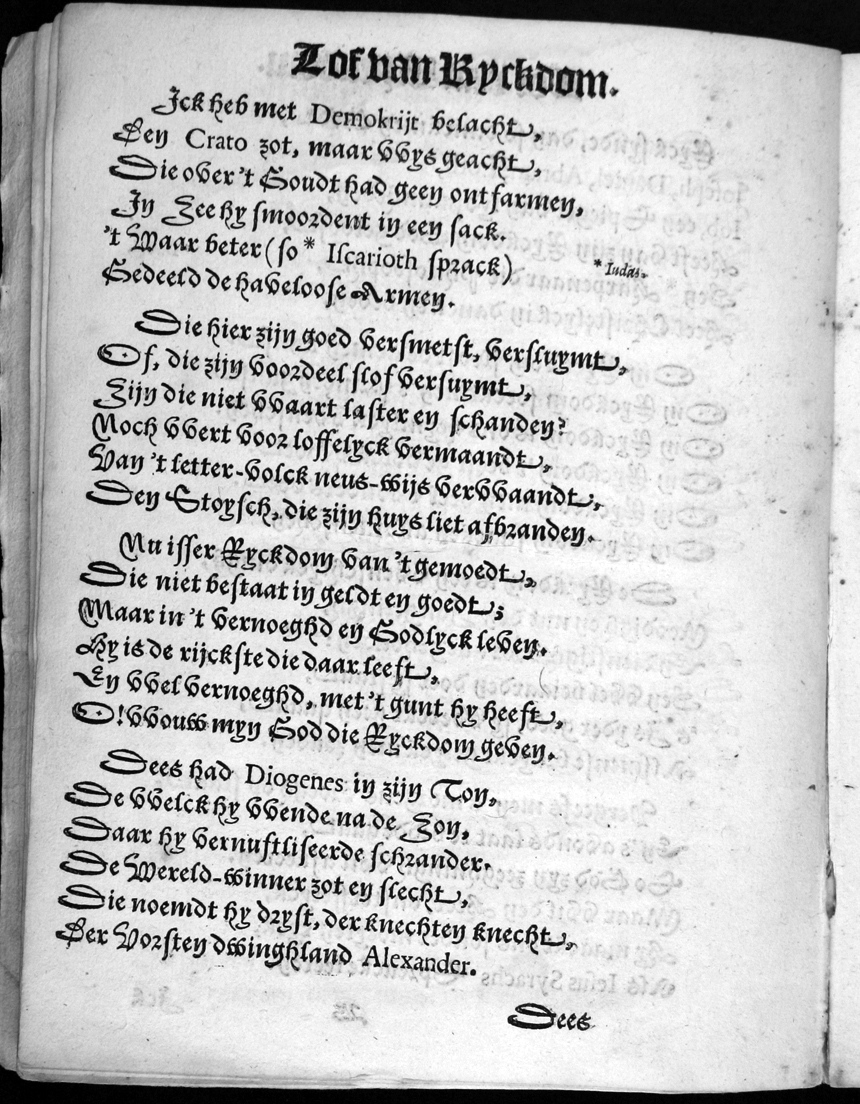 Lof van Ryckdom.
Ick heb met Demokrijt belacht,
Een Crato zot, maar vvys geacht,
Die over 't Goudt had geen ontfarmen,
In Zee hy smoordent in een sack.
't Waar beter (so * Iscarioth sprack)
* Iudas.
Gedeeld de haveloose Armen.
Die hier zijn goed versmetst, versluymt,
Of, die zijn voordeel slof versuymt,
Zijn die niet vvaart laster en schanden?
Noch vvert voor loffelyck vermaandt,
Van 't letter-volck neus-wijs vervvaandt,
Den Stoysch, die zijn huys liet afbranden.
Nu isser Ryckdom van 't gemoedt,
Die niet bestaat in geldt en goedt;
Maar in 't vernoeghd en Godlyck leven.
Hy is de rijckste die daar leeft,
En vvel vernoeghd, met 't gunt hy heeft,
O! vvouw myn God die Ryckdom geven.
Dees had Diogenes in zijn Ton,
De vvelck hy vvende na de Zon,
Daar hy vernuftliseerde schrander.
De Wereld-winner zot en slecht,
Die noemdt hy dryst, der knechten knecht,
Der Vorsten dwinghland Alexander.
Dees